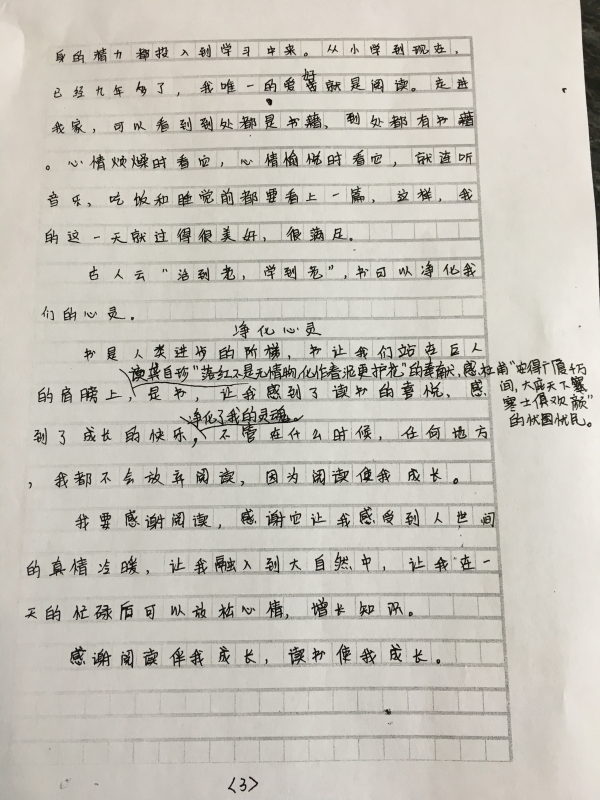 身的精力都投入到学习中来。从小学到现在，
已经九年多了，我唯一的爱好就是阅读。走进
我家，可以看到到处都是书籍，到处都有书籍
。心情烦燥时看它，心情愉悦时看它，就连听
音乐、吃饭和睡觉前都要看上一篇，这样，我
的这一天就过得很美好，很满足。
古人云“活到老，学到老”，书可以净化我
们的心灵。
净化心灵
书是人类进步的阶梯，书让我们站在巨人
读龚自珍“落红不是无情物，化作春泥更护花”的奉献，感杜甫“安得广厦千万
间，大庇天下寒
寒士俱欢颜”
的忧国忧民。
的肩膀上，是书，让我感到了读书的喜悦，感
净化了我的灵魂。
到了成长的快乐，不管在什么时候，任何地方
，我都不会放弃阅读，因为阅读使我成长。
我要感谢阅读，感谢它让我感受到人世间
的真情冷暖，让我融入到大自然中，让我在一
天的忙碌后可以放松心情，增长知识。
感谢阅读伴我成长，读书使我成长。
〈3〉